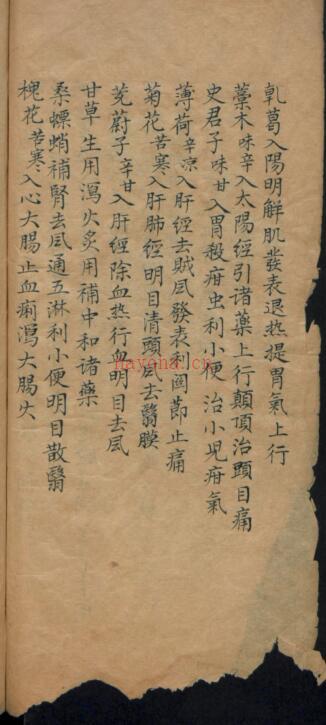 乹葛入陽明解肌發表退热提胃氣上行
藁木味辛入太陽經引诸藥上行顛頂治頭目痛
史君子味甘入胃殺疳虫利小便治小児疳氣
薄荷辛凉入肝經去賊凨發表利関莭止痛
菊花苦寒入肝肺經明目清頭凨去翳膜
茺蔚子辛甘入肝經除血热行血明目去凨
甘草生用瀉火炙用補中和诸藥
桑螵蛸補腎去凨通五淋利小便明目散翳
槐花苦寒入心大腸止血痢瀉大腸火
nayona.cn